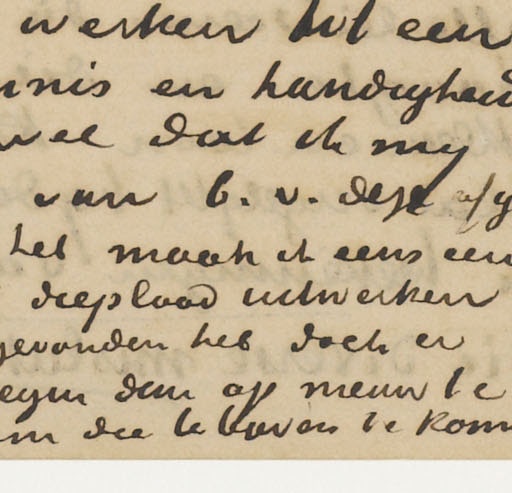 werken tot een
nnis en handigheid
wel dat ik my
van b.v. deze
het maak ik eens een
diepload uitwerken
gevonden heb doch er
egin dan op nieuw te
om die te boven te kom